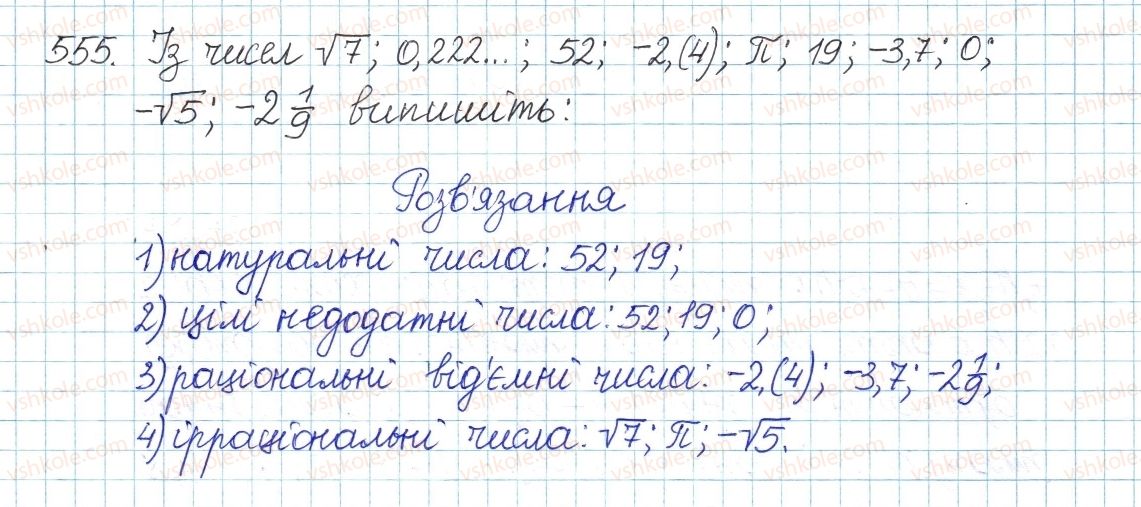 555. Із чисел √7; 0,222...; 52; -2,(4); π; 19; -3,7; 0;
-√5; -2 1/9 випишіть:
Розв'язання
1) натуральні числа: 52; 19;
2) цілі недодатні числа: 52; 19; 0;
3) раціональні від'ємні числа: -2,(4); -3,7; -2 1/9;
4) ірраціональні числа: √7; π; -√5.